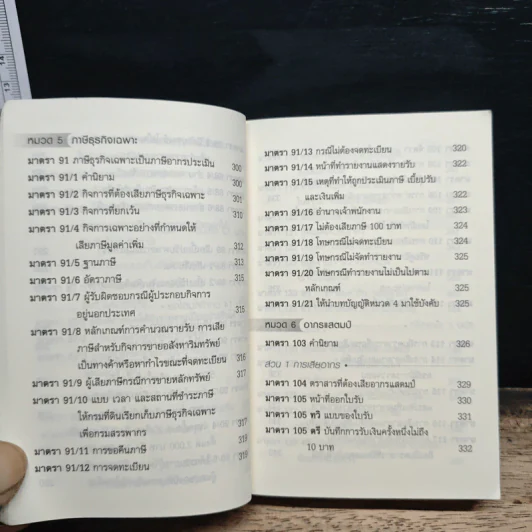 หมวด 5 ภาษีธุรกิจเฉพาะ
มาตรา 91 ภาษีธุรกิจเฉพาะเป็นภาษีอากรประเมิน 300
มาตรา 91/1 คำนิยาม 300
มาตรา 91/2 กิจการที่ต้องเสียภาษีธุรกิจเฉพาะ 301
มาตรา 91/3 กิจการที่ยกเว้น 310
มาตรา 91/4 กิจการเฉพาะอย่างที่กำหนดให้
เสียภาษีมูลค่าเพิ่ม 312
มาตรา 91/5 ฐานภาษี 313
มาตรา 91/6 อัตราภาษี 315
มาตรา 91/7 ผู้รับผิดชอบกรณีผู้ประกอบกิจการ
อยู่นอกประเทศ 315
มาตรา 91/8 หลักเกณฑ์การคำนวณรายรับ การเสีย
ภาษีสำหรับกิจการขายอสังหาริมทรัพย์
เป็นทางค้าหรือหากำไรขณะที่จดทะเบียน 316
มาตรา 91/9 ผู้เสียภาษีกรณีการขายหลักทรัพย์ 317
มาตรา 91/10 แบบ เวลา และสถานที่ชำระภาษี
ให้กรมที่ดินเรียกเก็บภาษีธุรกิจเฉพาะ
เพื่อกรมสรรพากร 317
มาตรา 91/11 การขอคืนภาษี 319
มาตรา 91/12 การจดทะเบียน 319
มาตรา 91/13 กรณีไม่ต้องจดทะเบียน 320
มาตรา 91/14 หน้าที่ทำรายงานแสดงรายรับ 322
มาตรา 91/15 เหตุที่ทำให้ถูกประเมินภาษี เบี้ยปรับ
และเงินเพิ่ม 322
มาตรา 91/16 อำนาจเจ้าพนักงาน 323
มาตรา 91/17 ไม่ต้องเสียภาษี 100 บาท 324
มาตรา 91/18 โทษกรณีไม่จดทะเบียน 324
มาตรา 91/19 โทษกรณีไม่จัดทำรายงาน 325
มาตรา 91/20 โทษกรณีทำรายงานไม่เป็นไปตาม
หลักเกณฑ์ 325
มาตรา 91/21 ให้นำบทบัญญัติหมวด 4 มาใช้บังคับ 325
หมวด 6 อากรแสตมป์
มาตรา 103 คำนิยาม 326
ส่วน 1 การเสียอากร
มาตรา 104 ตราสารที่ต้องเสียอากรแสตมป์ 329
มาตรา 105 หน้าที่ออกใบรับ 330
มาตรา 105 ทวิ แบบของใบรับ 331
มาตรา 105 ตรี บันทึกการรับเงินครั้งหนึ่งไม่ถึง
10 บาท 332